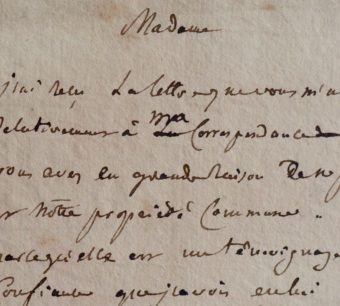 Madame
j'ai reçu La lettre que vous m'a
Relativement à ma Correspondance
vous avez eu grande Raison De ne p
r notre propriété Commune .
parcequ'elle est un témoignage
Confiance que j'avois en lui